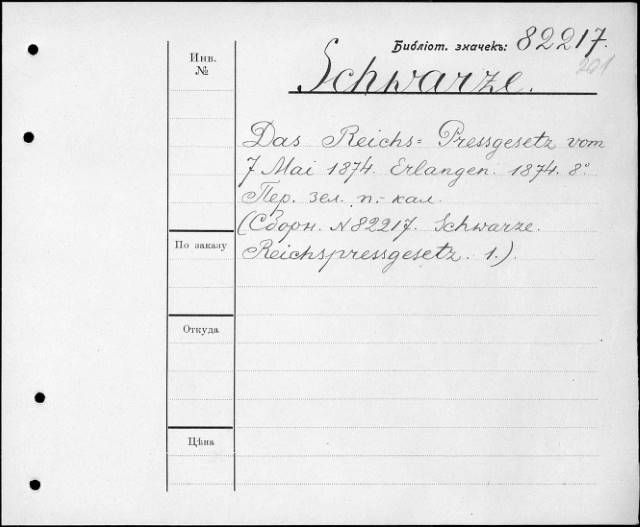 Библіот. значекъ: 82217.
201
Инв.
№
Schwarze.
Das Reichs= Pressgesetz vom
7 Mai 1874. Erlangen. 1874. 8°
Пер. зел. п.- кал.
(Сборн. №82217. Schwarze.
Reichspressgesetz. 1.).
По заказу
Откуда
Цѣна